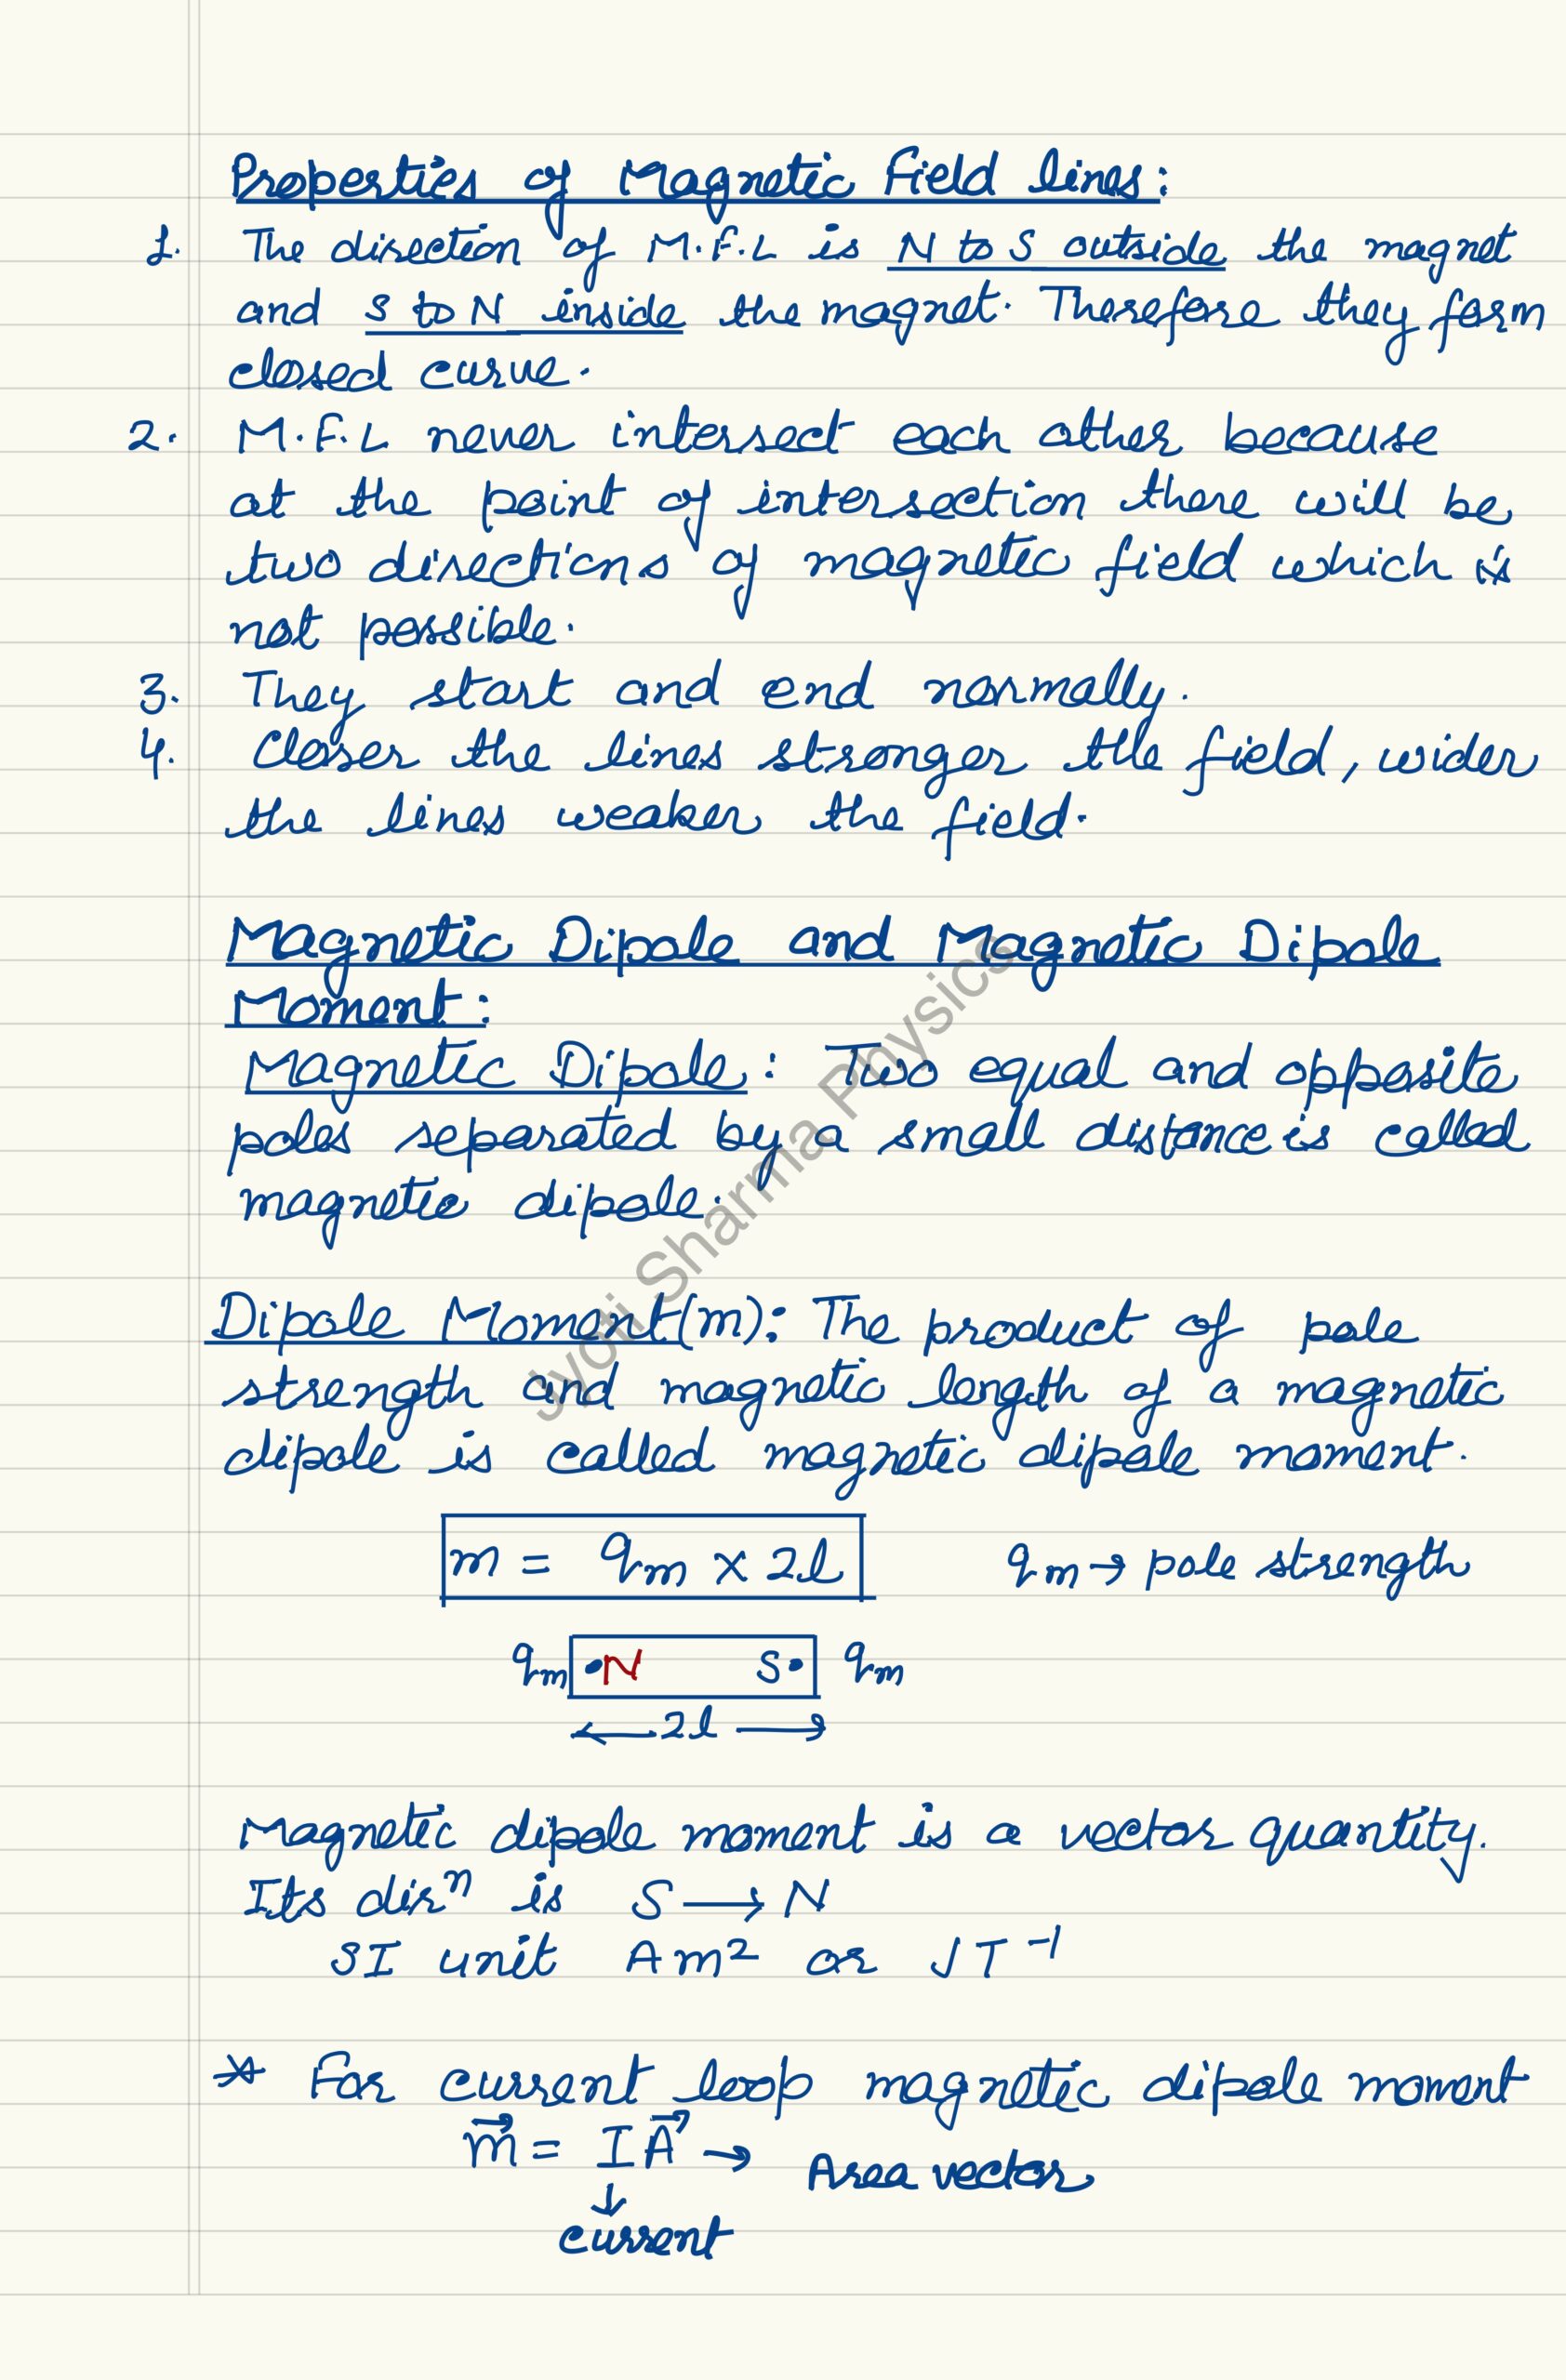 Properties of Magnetic Field lines:
1. The direction of M.F.L is N to S outside the magnet
and S to N inside the magnet. Therefore they form
closed curve.
2. M.F.L never intersect each other because
at the point of intersection there will be
two directions of magnetic field which is
not possible.
3. They start and end normally.
4. Closer the lines stronger the field, wider
the lines weaker the field.
Magnetic Dipole and Magnetic Dipole
Moment:
Magnetic Dipole: Two equal and opposite
poles separated by a small distance is called
magnetic dipole.
Dipole Moment(m): The product of pole
strength and magnetic length of a magnetic
dipole is called magnetic dipole moment.
m = qₘ × 2l qₘ → pole strength
qₘ •N S• qₘ
← 2l →
Magnetic dipole moment is a vector quantity.
Its dirⁿ is S → N
SI unit Am² or JT⁻¹
* For current loop magnetic dipole moment
m⃗ = IA⃗ → Area vector
↓
current
Jyoti Sharma Physics